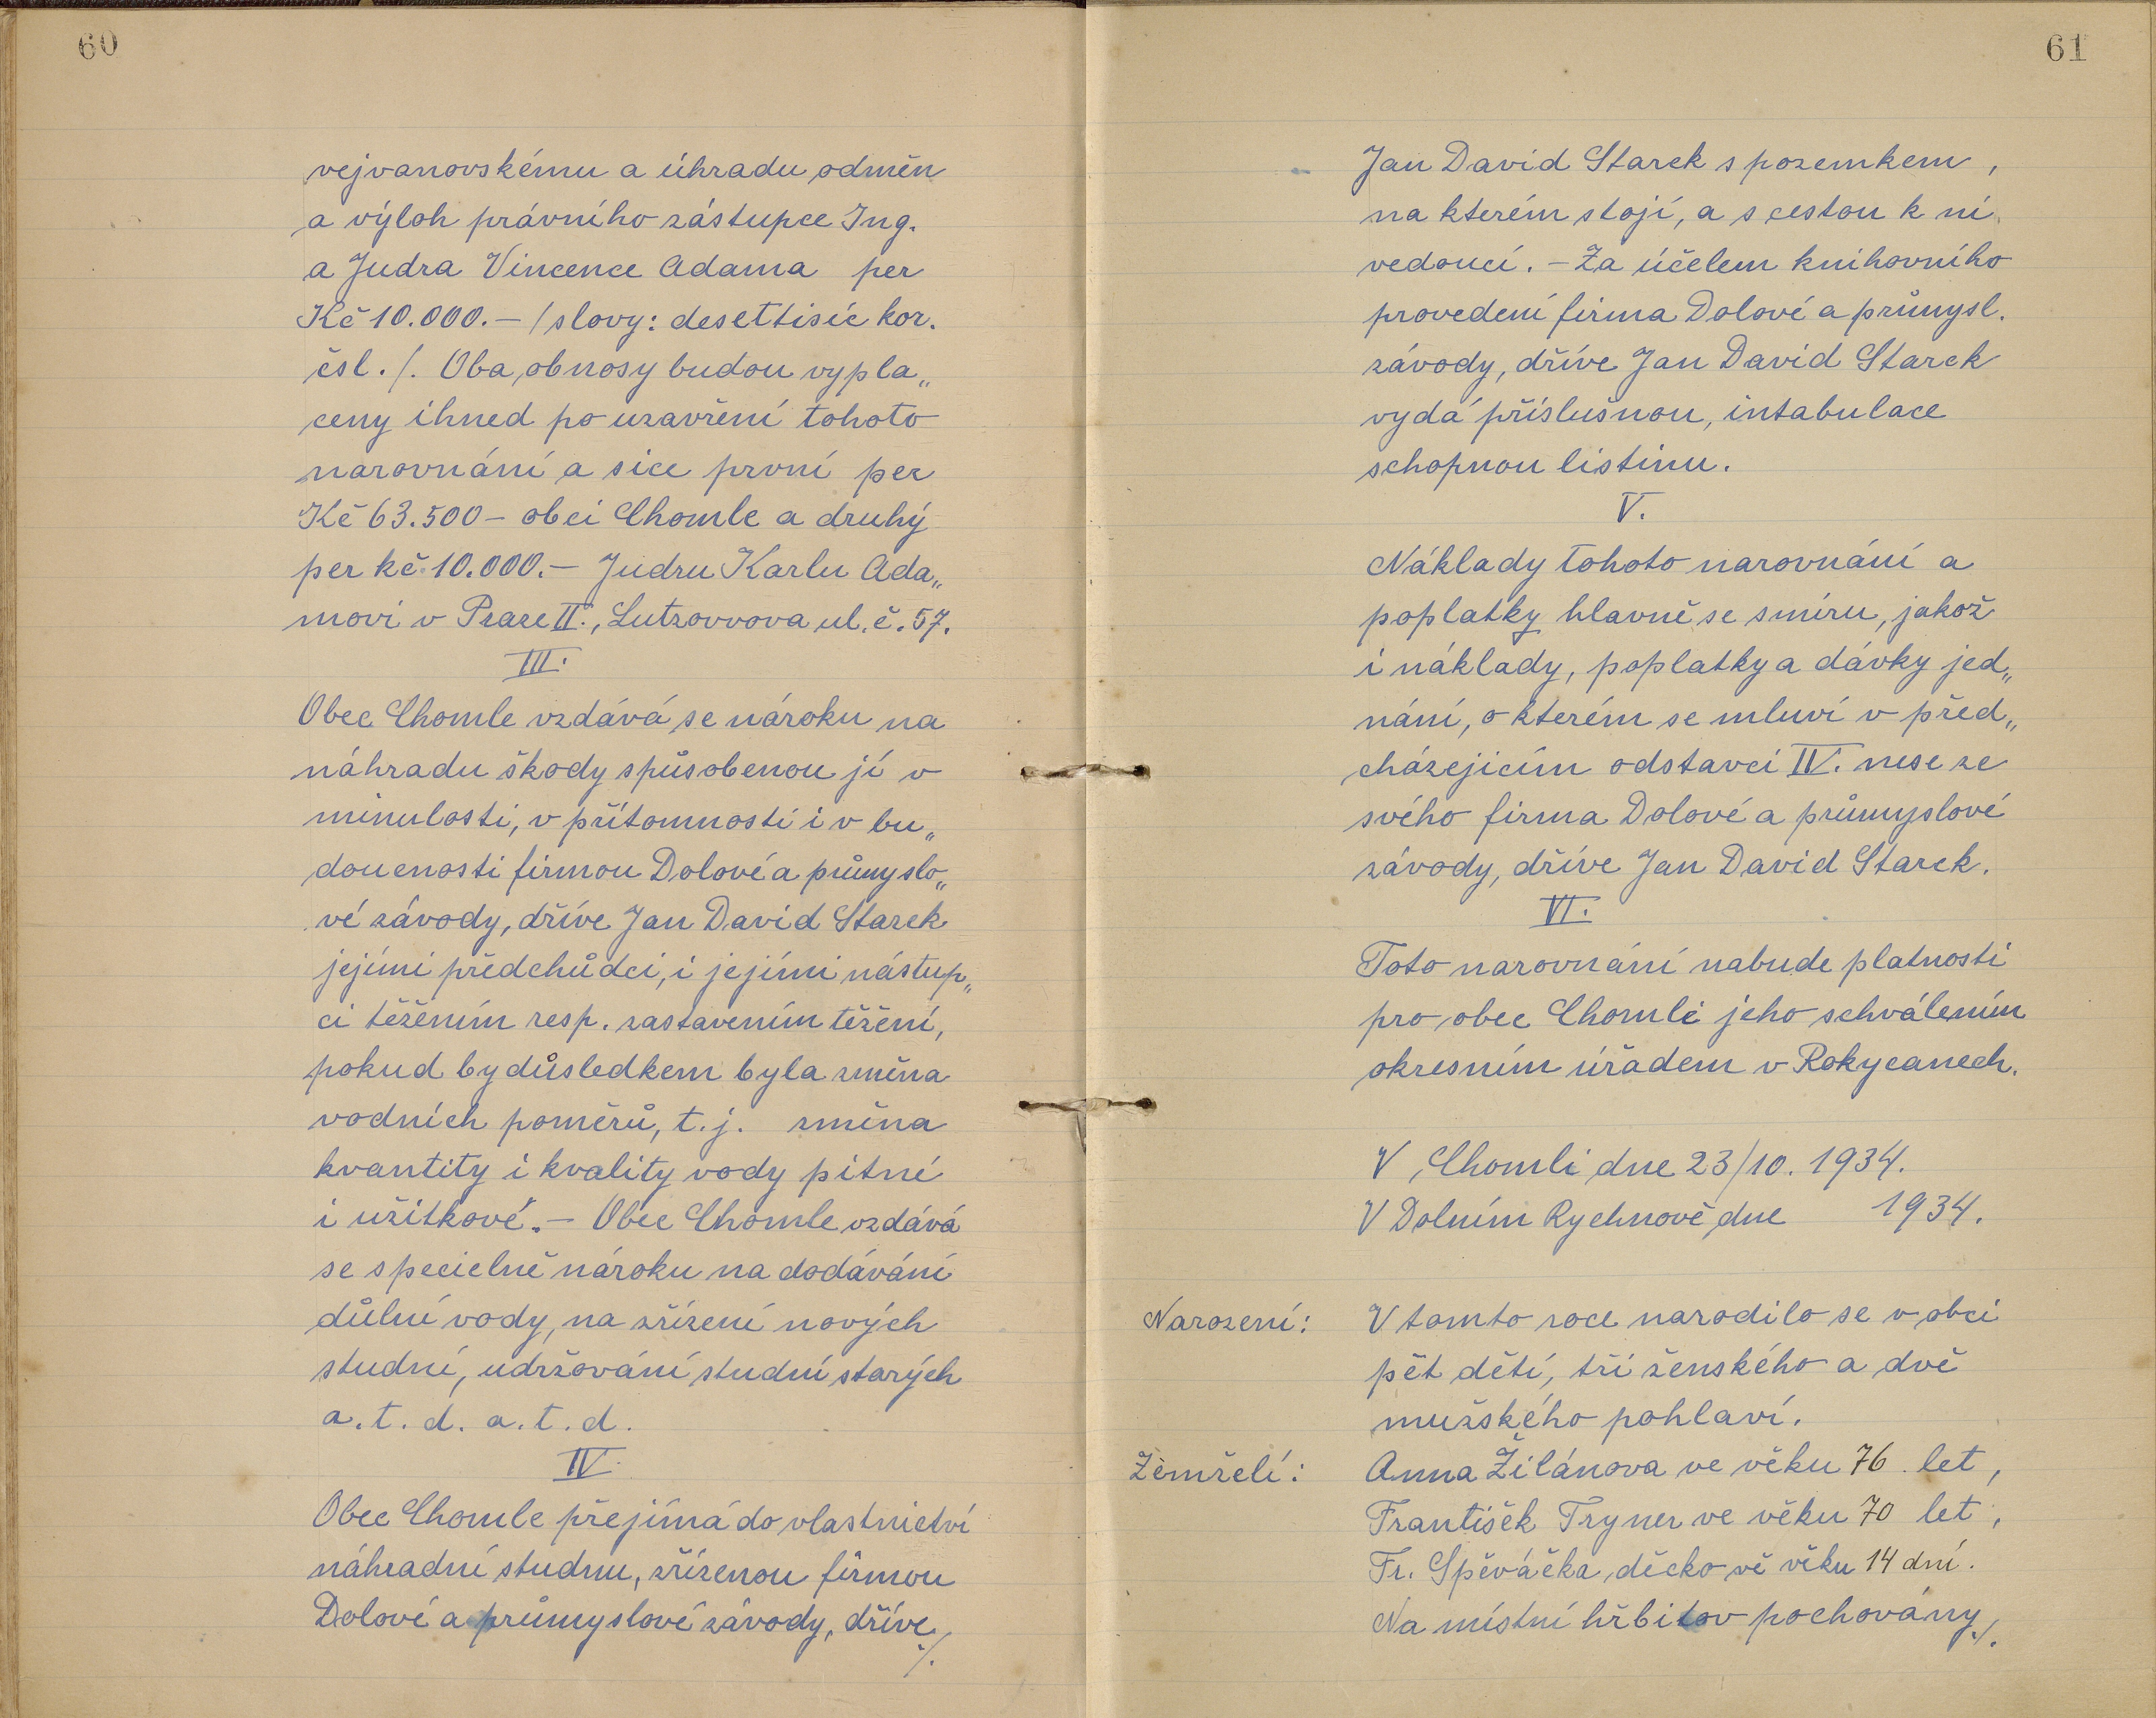 60
vejvanovskému a úhradu odměn
a výloh právního zástupce Ing.
a Judra Vincence Adama per
Kč 10.000.— /slovy: desettisíc kor.
čsl./. Oba obnosy budou vypla„
ceny ihned po uzavření tohoto
narovnání a sice první per
Kč 63.500 – obci Chomle a druhý
per kč 10.000.— Judru Karlu Ada„
movi v Praze II., Lutzovvova ul. č. 57.
III.
Obec Chomle vzdává se nároku na
náhradu škody spůsobenou jí v
minulosti, v přítomnosti i v bu„
doucnosti firmou Dolové a průmyslo„
vé závody, dříve Jan David Starek
jejími předchůdci, i jejími nástup„
ci těžením resp. zastavením těžení,
pokud by důsledkem byla změna
vodních poměrů, t. j. změna
kvantity i kvality vody pitné
i užitkové. — Obec Chomle vzdává
se specielně nároku na dodávání
důlní vody, na zřízení nových
studní, udržování studní starých
a. t. d. a. t. d.
IV.
Obec Chomle přejímá do vlastnictví
náhradní studnu, zřízenou firmou
Dolové a průmyslové závody, dříve
./.
61
Jan David Starek s pozemkem,
na kterém stojí, a s cestou k ní
vedoucí. — Za účelem knihovního
provedení firma Dolové a průmysl.
závody, dříve Jan David Starek
vydá příslušnou, intabulace
schopnou listinu.
V.
Náklady tohoto narovnání a
poplatky hlavně se smíru, jakož
i náklady, poplatky a dávky jed„
nání, o kterém se mluví v před„
cházejicím odstavci IV. nese ze
svého firma Dolové a průmyslové
závody, dříve Jan David Starek.
VI.
Toto narovnání nabude platnosti
pro obec Chomli jeho schválením
okresním úřadem v Rokycanech.
V Chomli dne 23/10. 1934.
V Dolním Rychnově dne 1934.
Narození: V tomto roce narodilo se v obci
pět dětí, tři ženského a dvě
mužského pohlaví.
Zemřelí: Anna Žilánova ve věku 76 let,
František Tryner ve věku 70 let,
Fr. Spěváčka, děcko vě věku 14 dní.
Na místní hřbitov pochovány ./.